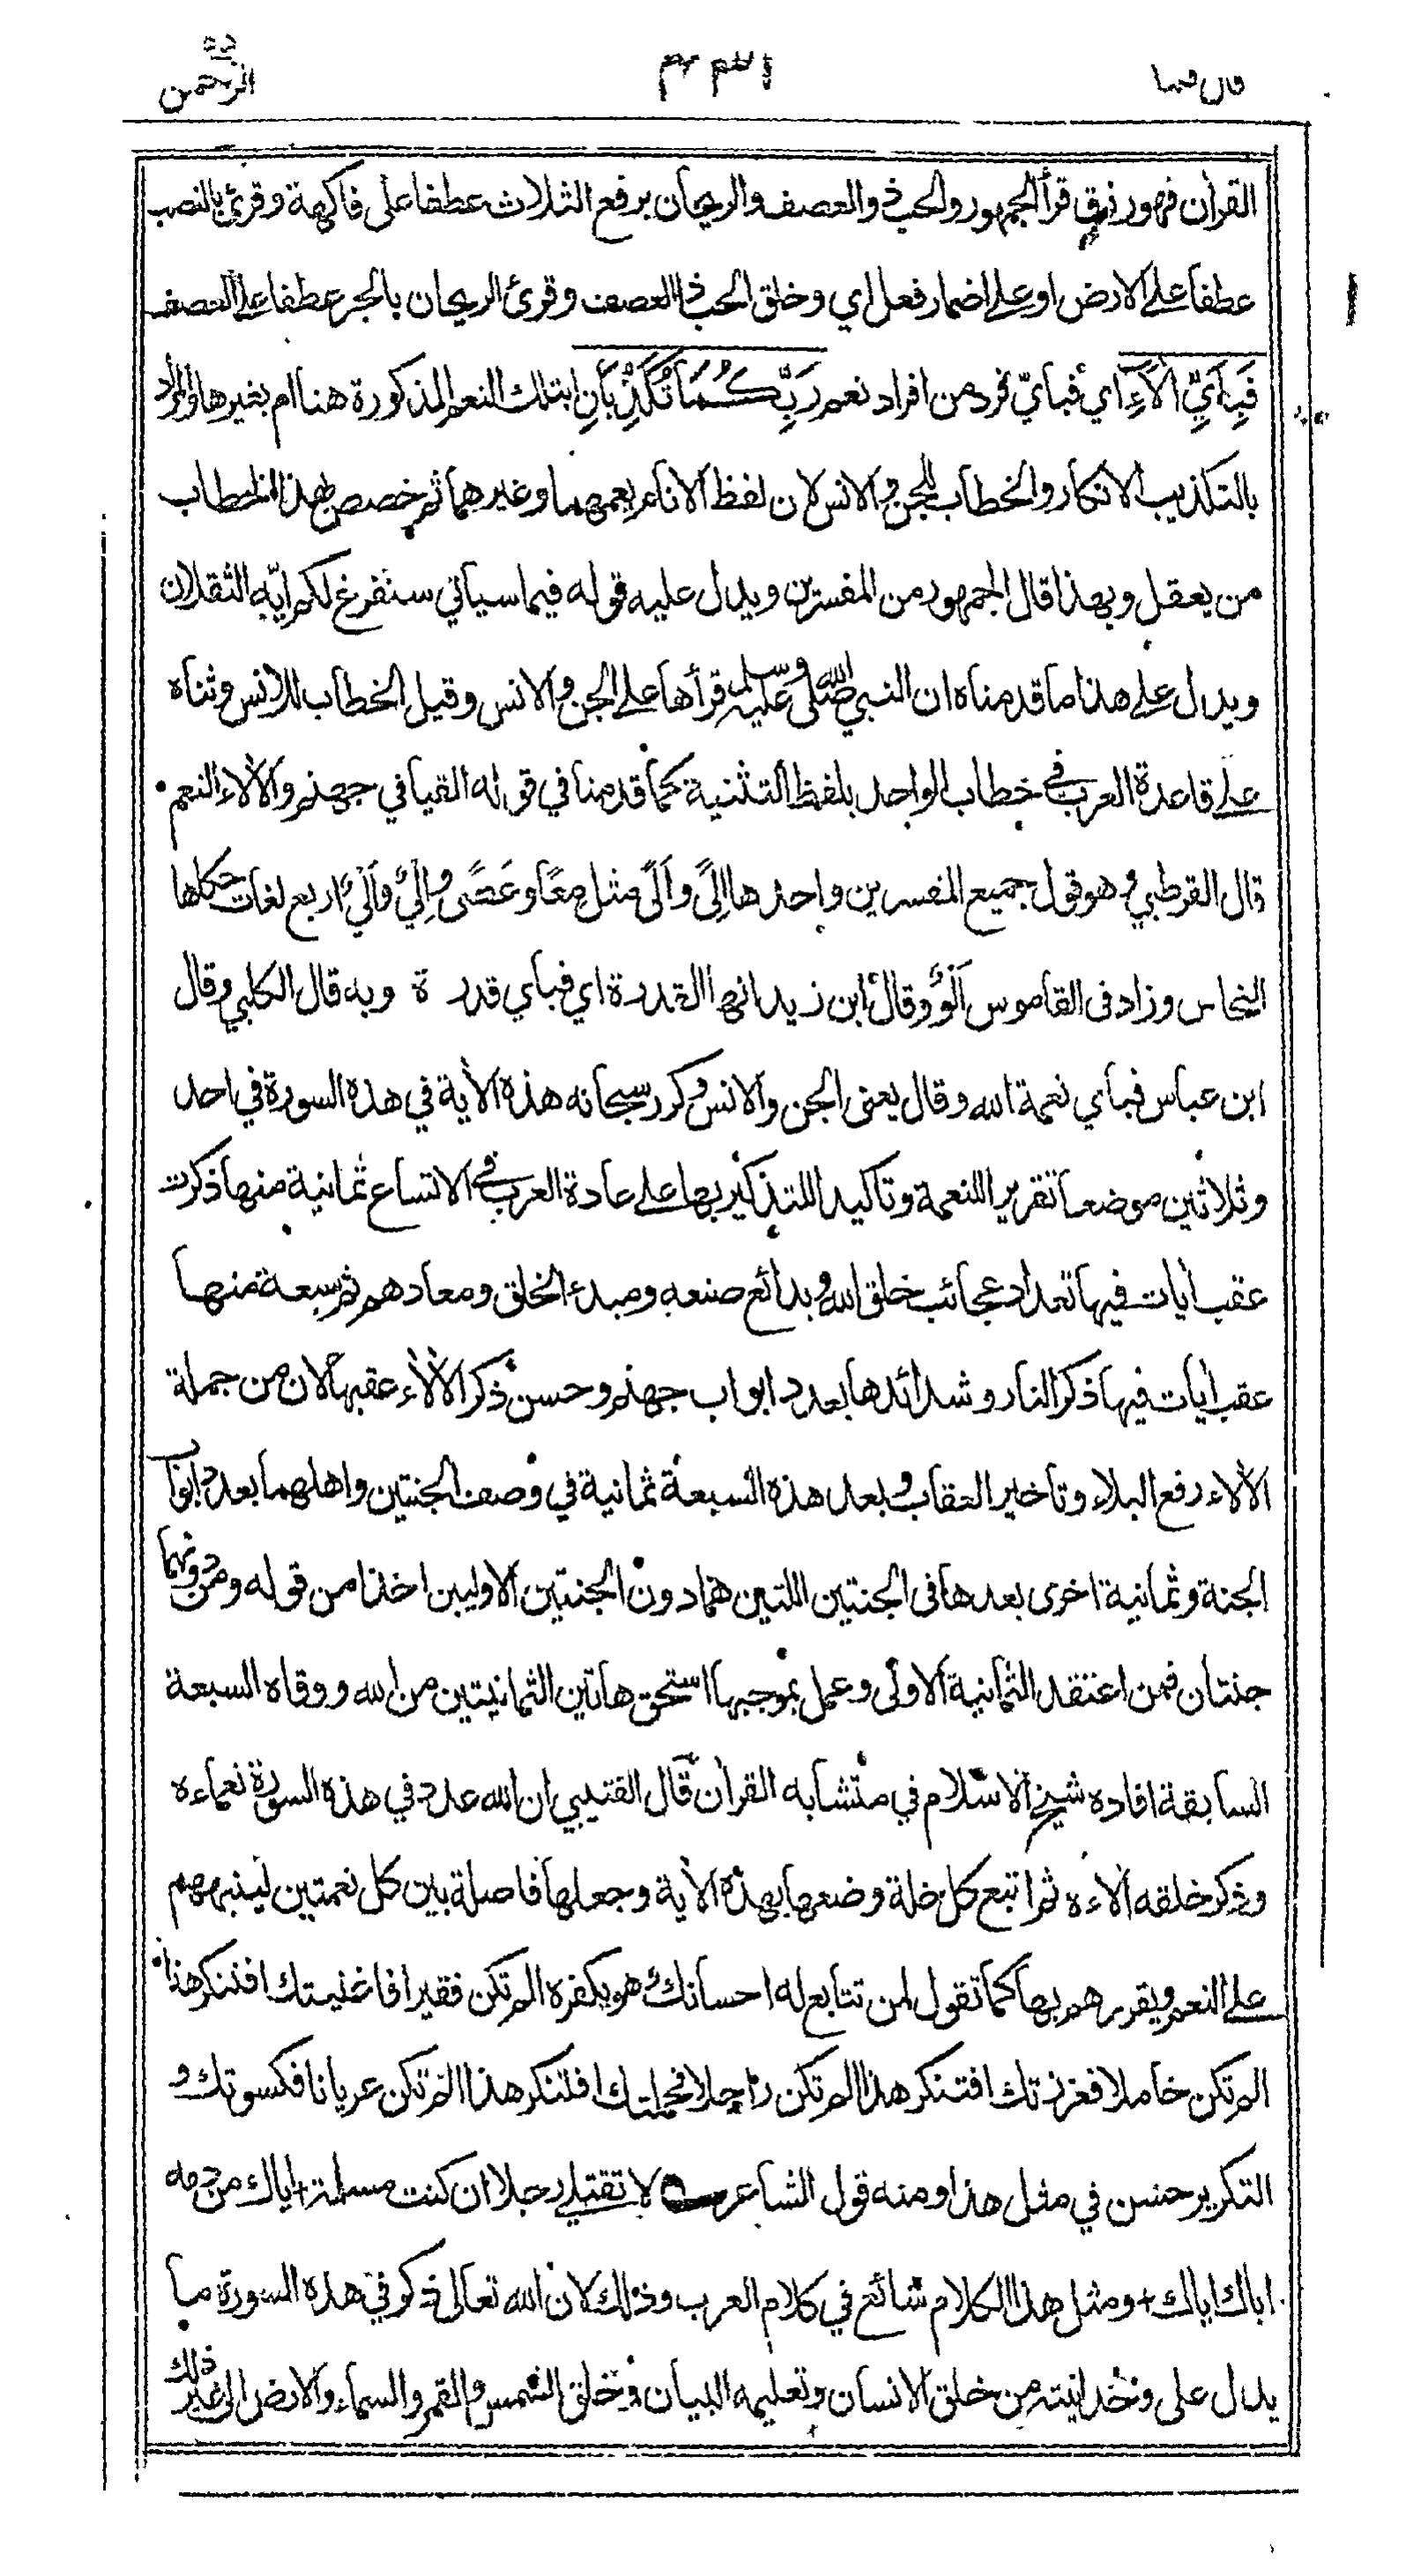 قال فما ٤٣١ الرحمن ٥٥
القراٰن فهو رزق قرأ الجمهور والحب ذو العصف والريحان برفع الثلاث عطفا على فاكهة وقرئ بالنصب
عطفا على الارض او على اضمار فعل اي وخلق الحب ذا العصف وقرئ الريحان بالجر عطفا على العصف
فَبِاَيِّ اٰلَاۤءِ اي فبايّ فرد من افراد نعم رَبِّكُمَا تُكَذِّبَانِ ابتلك النعم المذكورة هنا ام بغيرها والمراد
بالتكذيب الانكار والخطاب للجن والانس لان لفظ الانام يعمهما وغيرهما ثم خصص بهذا الخطاب
من يعقل وبهذا قال الجمهور من المفسرين ويدل عليه قوله فيما سياتي سنفرغ لكم ايّه الثقلان
ويدل على هذا ما قدمناه ان النبي صلى الله عليه وسلم قرأها على الجن والانس وقيل الخطاب للانس وثناه
على قاعدة العرب في خطاب الواحد بلفظ التثنية كما قدمنا في قوله القيا في جهنم والاٰلاء النعم
قال القرطبي وهو قول جميع المفسرين واحدها اِلًى واَلًى مثل مِعًا وعَصًى واِلْيٌ واَلْيٌ اربع لغات حكاها
النحاس وزاد فى القاموس اَلْوٌ وقال ابن زيد انها القدرة اي فباي قدرة وبه قال الكلبي وقال
ابن عباس فباي نعمة الله وقال يعنى الجن والانس وكرر سبحانه هذه الاٰية في هذه السورة في احد
وثلاثين موضعا تقريرا للنعمة وتاكيدا للتذكير بها على عادة العرب في الاتساع ثمانية منها ذكرت
عقب اٰيات فيها تعداد عجائب خلق الله وبدائع صنعه ومبدء الخلق ومعادهم ثم سبعة منها
عقب اٰيات فيها ذكر النار وشدائدها بعدد ابواب جهنم وحسن ذكر الاٰلاء عقبها لان من جملة
الاٰلاء رفع البلاء وتاخير العقاب وبعد هذه السبعة ثمانية في وصف الجنتين واهلهما بعدد ابواب
الجنة وثمانية اخرى بعدها فى الجنتين اللتين هما دون الجنتين الاوليين اخذا من قوله ومن دونهما
جنتان فمن اعتقد الثمانية الاولى وعمل بموجبها استحق هاتين الثمانيتين من الله ووقاه السبعة
السابقة افاده شيخ الاسلام في متشابه القراٰن قال القتيبي ان الله عدد في هذه السورة نعماءه
وذكر خلقه اٰلاءه ثم اتبع كل خلة وضعها بهذه الاٰية وجعلها فاصلة بين كل نعمتين لينبههم
على النعم ويقررهم بها كما تقول لمن تتابع له احسانك وهو يكفره الم تكن فقيرا فاغنيتك افتنكر هذا
الم تكن خاملا فعززتك افتنكر هذا الم تكن راجلا فحملتك افتنكر هذا الم تكن عريانا فكسوتك و
التكرير حسن في مثل هذا ومنه قول الشاعر لا تقتلي رجلا ان كنت مسلمة + اياك من دمه
اياك اياك + ومثل هذا الكلام شائع في كلام العرب وذلك لان الله تعالى ذكر في هذه السورة ما
يدل على وحدانيته من خلق الانسان وتعليمه البيان وخلق الشمس والقمر والسماء والارض الى غير ذلك